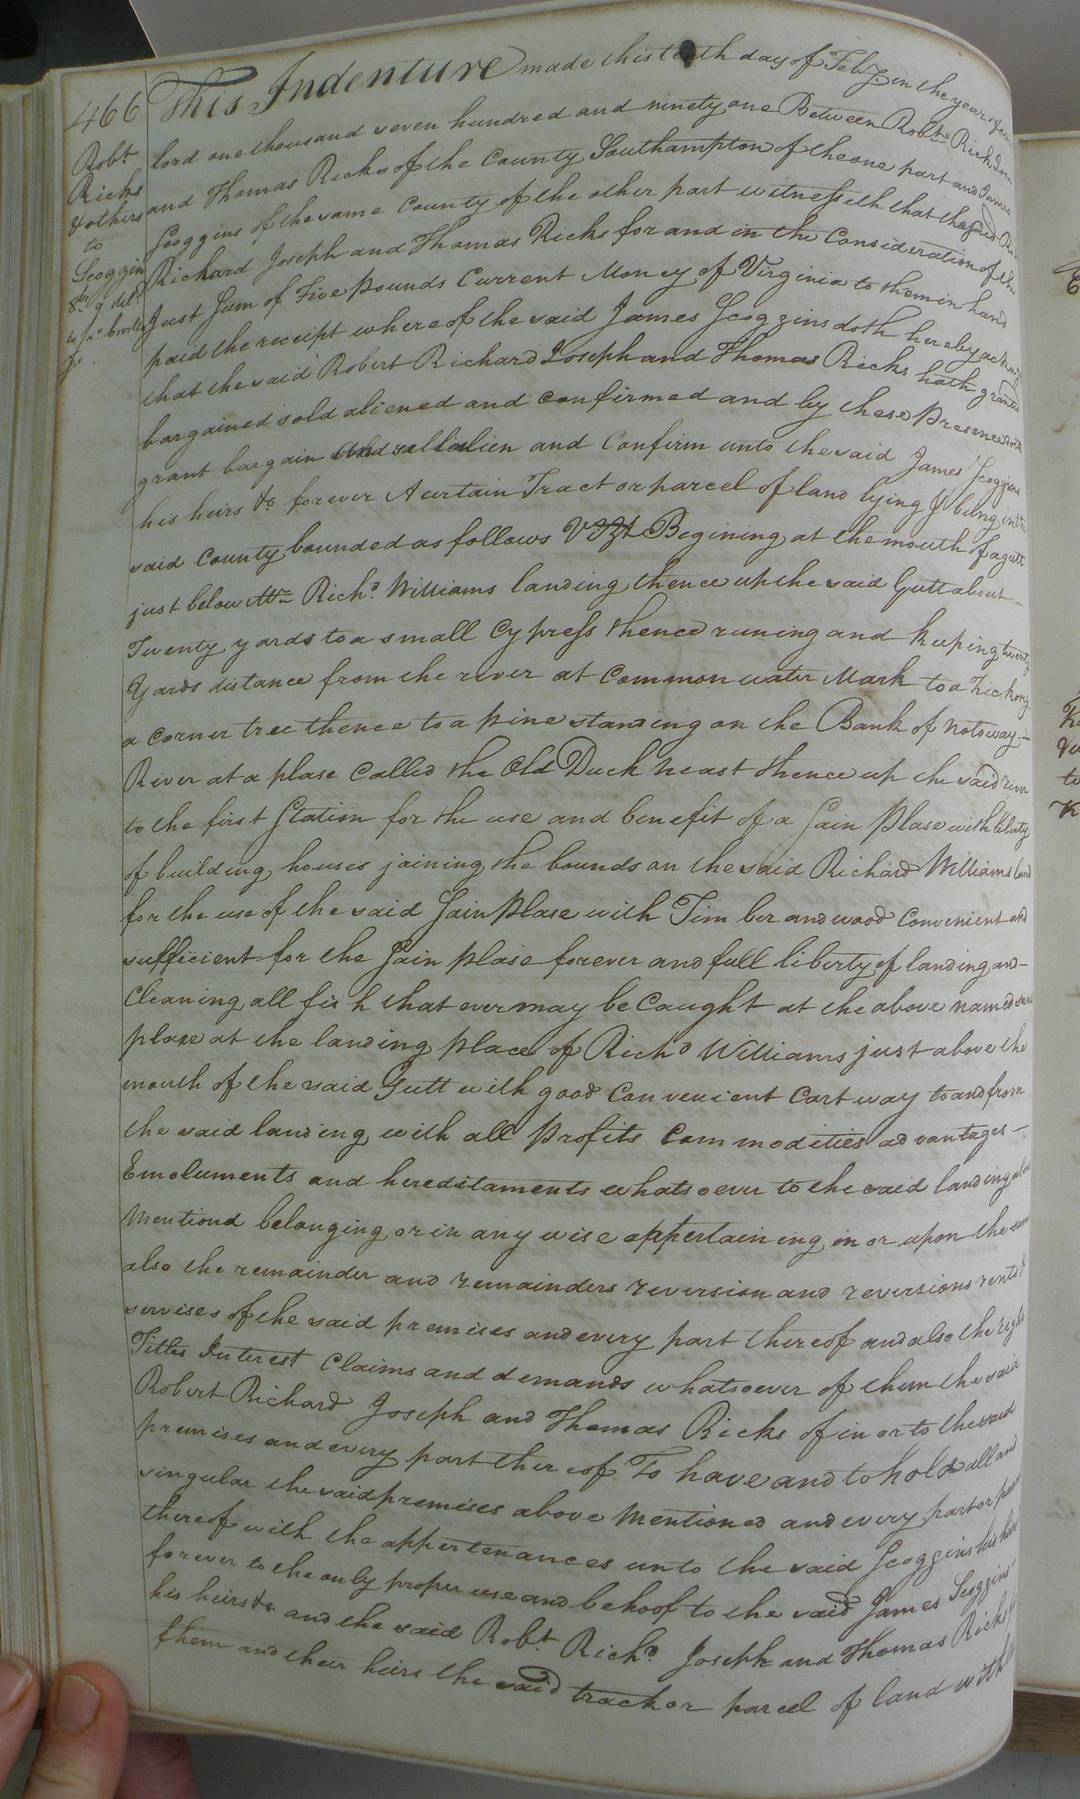 466
Robt
Ricks
& others
to
Scoggin
This Indenture made this day of Feby in the year of our
lord one thousand seven hundred and ninety one Between Robt Rich
and Thomas Ricks of the County Southampton of the one part and James
Scoggins of the same County of the other part witnesseth that the said
Richard Joseph and Thomas Ricks for and in the Consideration of the
Just Sum of Five Pounds Current Money of Virginia to them in hand
paid the receipt whereof the said James Scoggins doth hereby
that the said Robert Richard Joseph and Thomas Ricks hath granted
bargained sold aliened and confirmed and by these Presence doth
grant bargain and sell alien and Confirm unto the said James Scoggins
his heirs &c forever A certain Tract or parcel of land lying & being in the
said County bounded as follows Vizt Begining at the mouth of a gutt
just below Mr Richd Williams landing thence up the said Gutt about
Twenty yards to a small Cypress thence runing and keeping twenty
Yards distance from the river at Common water Mark to a hickory
a corner tree thence to a pine standing on the Bank of notoway
River at a plase Called the Old Duck neast thence up the said river
to the first Station for the use and benefit of a Sain Plase with liberty
of building houses joining the bounds on the said Richard Williams land
for the use of the said Sain Plase with Timber and wood Convenient and
sufficient for the Sain plase forever and full liberty of landing and
Cleaning all fish that ever may be Caught at the above named
plase at the landing place of Richd Williams just above the
mouth of the said Gutt with good Convenient Cart way to and from
the said landing with all Profits Commodities advantages
Emoluments and hereditaments whatsoever to the said landing above
Mentiond belonging or in any wise appertaining in or upon the same
also the remainder and remainders reversion and reversions rents &
servises of the said premises and every part thereof and also the right
Titles Interest Claims and demands whatsoever of them the said
Robert Richard Joseph and Thomas Ricks of in or to the said
premises and every part thereof To have and to hold all and
singular the said premises above Mentioned and every part or part
thereof with the appertenances unto the said Scoggins his heirs
forever to the only proper use and behoof to the said James Scoggins
his heirs &c and the said Robt Richd Joseph and Thomas Ricks
them and their heirs the said track or parcel of land with